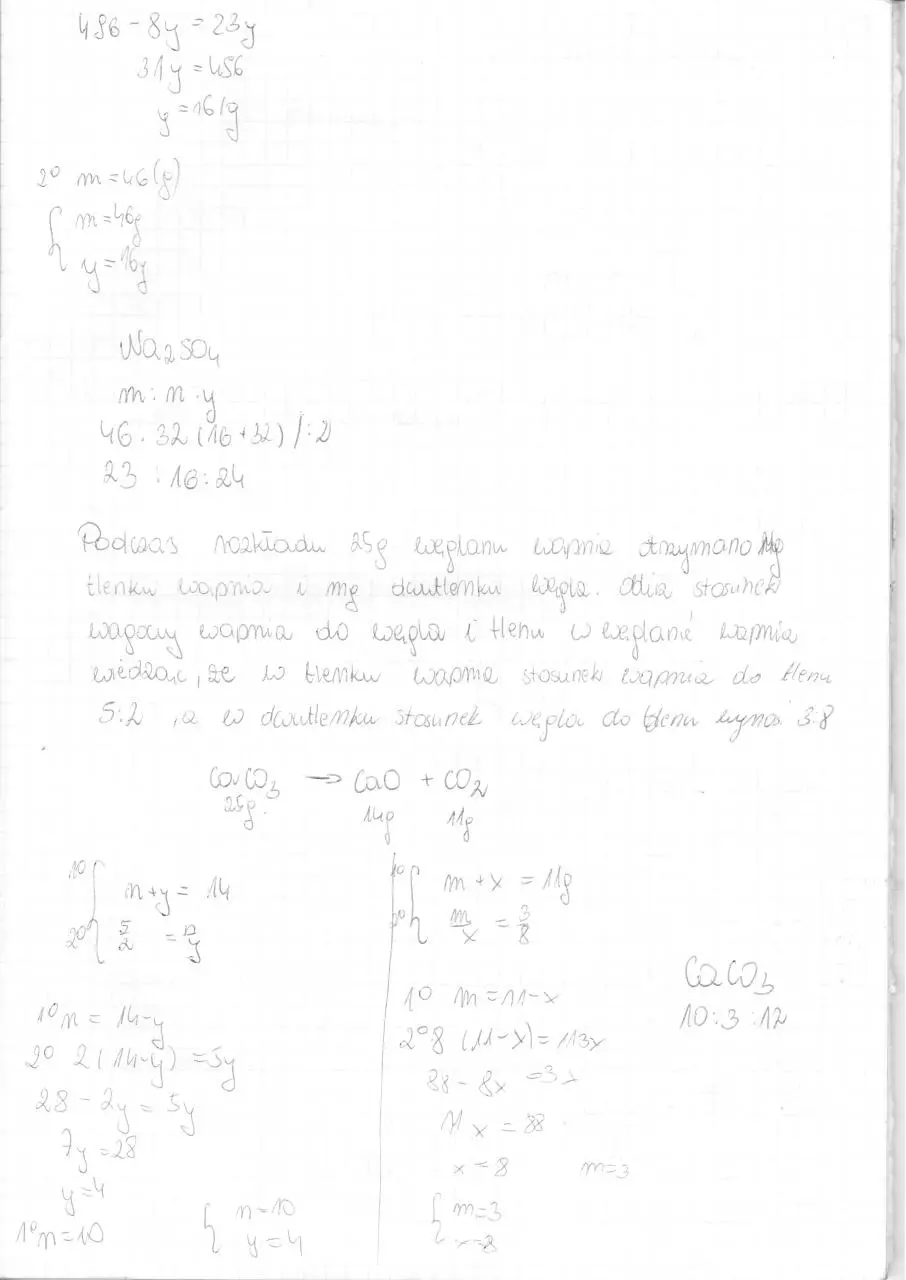 496 - 8y = 23y
31y = 496
y = 16 /g
2° m = 46 (g)
m = 46g
y = 16g
Na2SO4
m : n : y
46 . 32 (16 + 32) / : 2
23 : 16 : 24
Podczas rozkładu 25g węglanu wapnia otrzymano 14g
tlenku wapnia i 11g dwutlenku węgla. stosunek
wagowy wapnia do węgla i tlenu w węglanie wapnia
wiedząc, że w tlenku wapnia stosunek wapnia do tlenu
5:2, a w dwutlenku stosunek węgla do tlenu wynosi 3:8
CaCO3 → CaO + CO2
25g. 14g 11g
1° n + y = 14
2° 5/2 = n/y
1° n = 14 - y
2° 2(14 - y) = 5y
28 - 2y = 5y
7y = 28
y = 4
1° n = 10
n = 10
y = 4
1° m + x = 11g
2° m/x = 3/8
1° m = 11 - x
2° 8 (11 - x) = 3x
88 - 8x = 3x
11x = 88
x = 8 m = 3
m = 3
x = 8
CaCO3
10 : 3 : 12